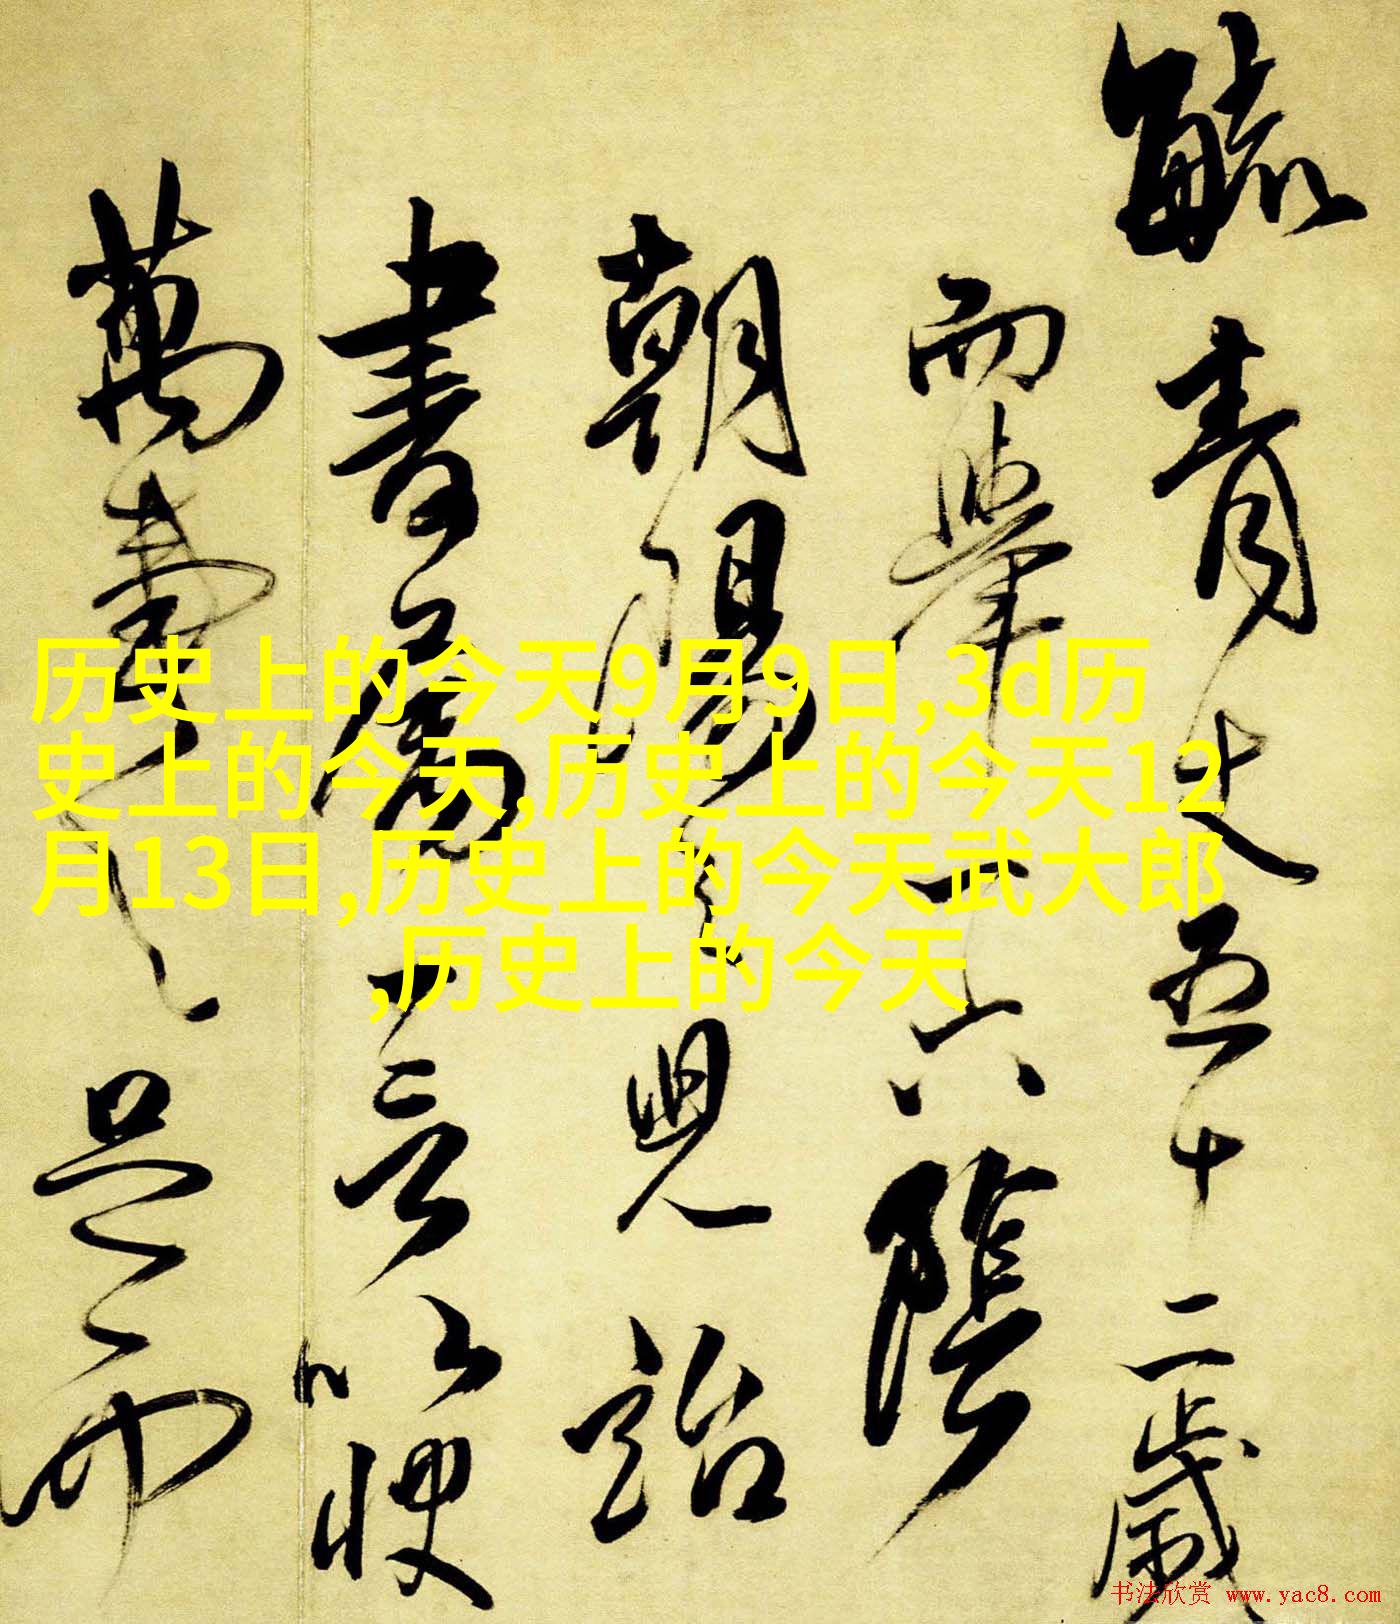 毓青丈五十二歲
而舉六陰
朝陽之見詒
書屬一言以
萬
历史上的今天9月9日,3d历
史上的今天,历史上的今天12
月13日,历史上的今天武大郎
,历史上的今天
书法欣赏 www.yac8.com